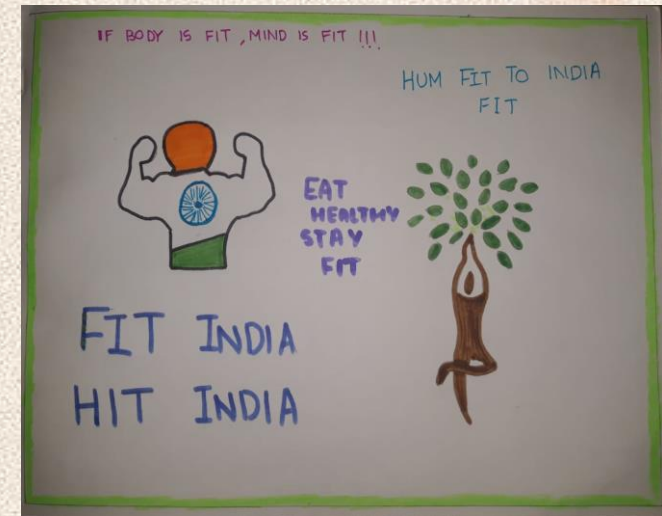 IF BODY IS FIT, MIND IS FIT !!!
HUM FIT TO INDIA
FIT
EAT
HEALTHY
STAY
FIT
FIT INDIA
HIT INDIA